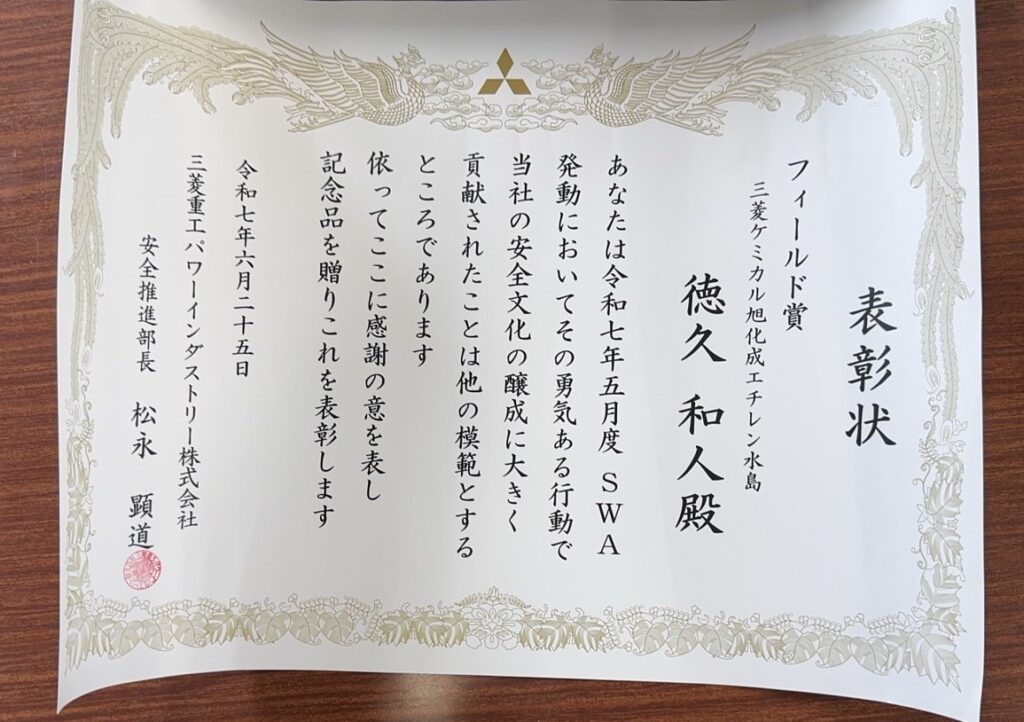 表彰状
フィールド賞
三菱ケミカル旭化成エチレン水島
徳久 和人殿
あなたは令和七年五月度 SWA
発動においてその勇気ある行動で
当社の安全文化の醸成に大きく
貢献されたことは他の模範とする
ところであります
依ってここに感謝の意を表し
記念品を贈りこれを表彰します
令和七年六月二十五日
三菱重工パワーインダストリー株式会社
安全推進部長 松永 顕道